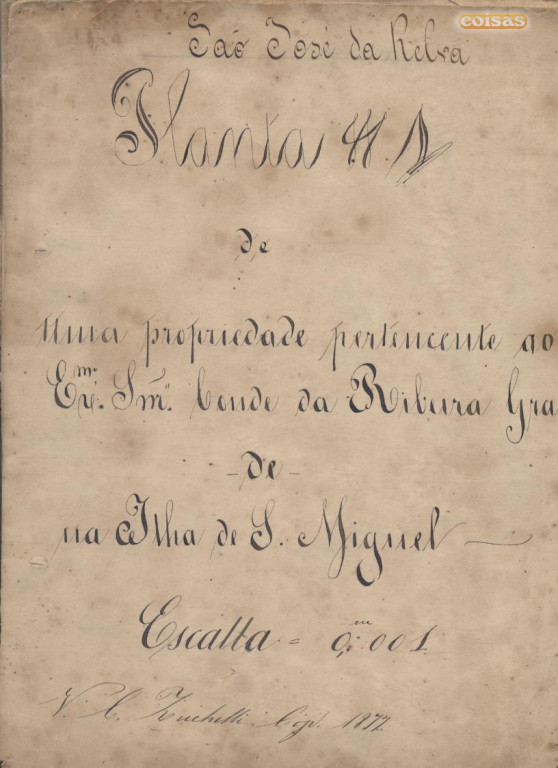 coisas
São José da Relva
Planta
de
Uma propriedade pertencente ao
Exmº. Snr. Conde da Ribeira Gra
- de -
na Ilha de S. Miguel
Escalla = 0,m 001
1877